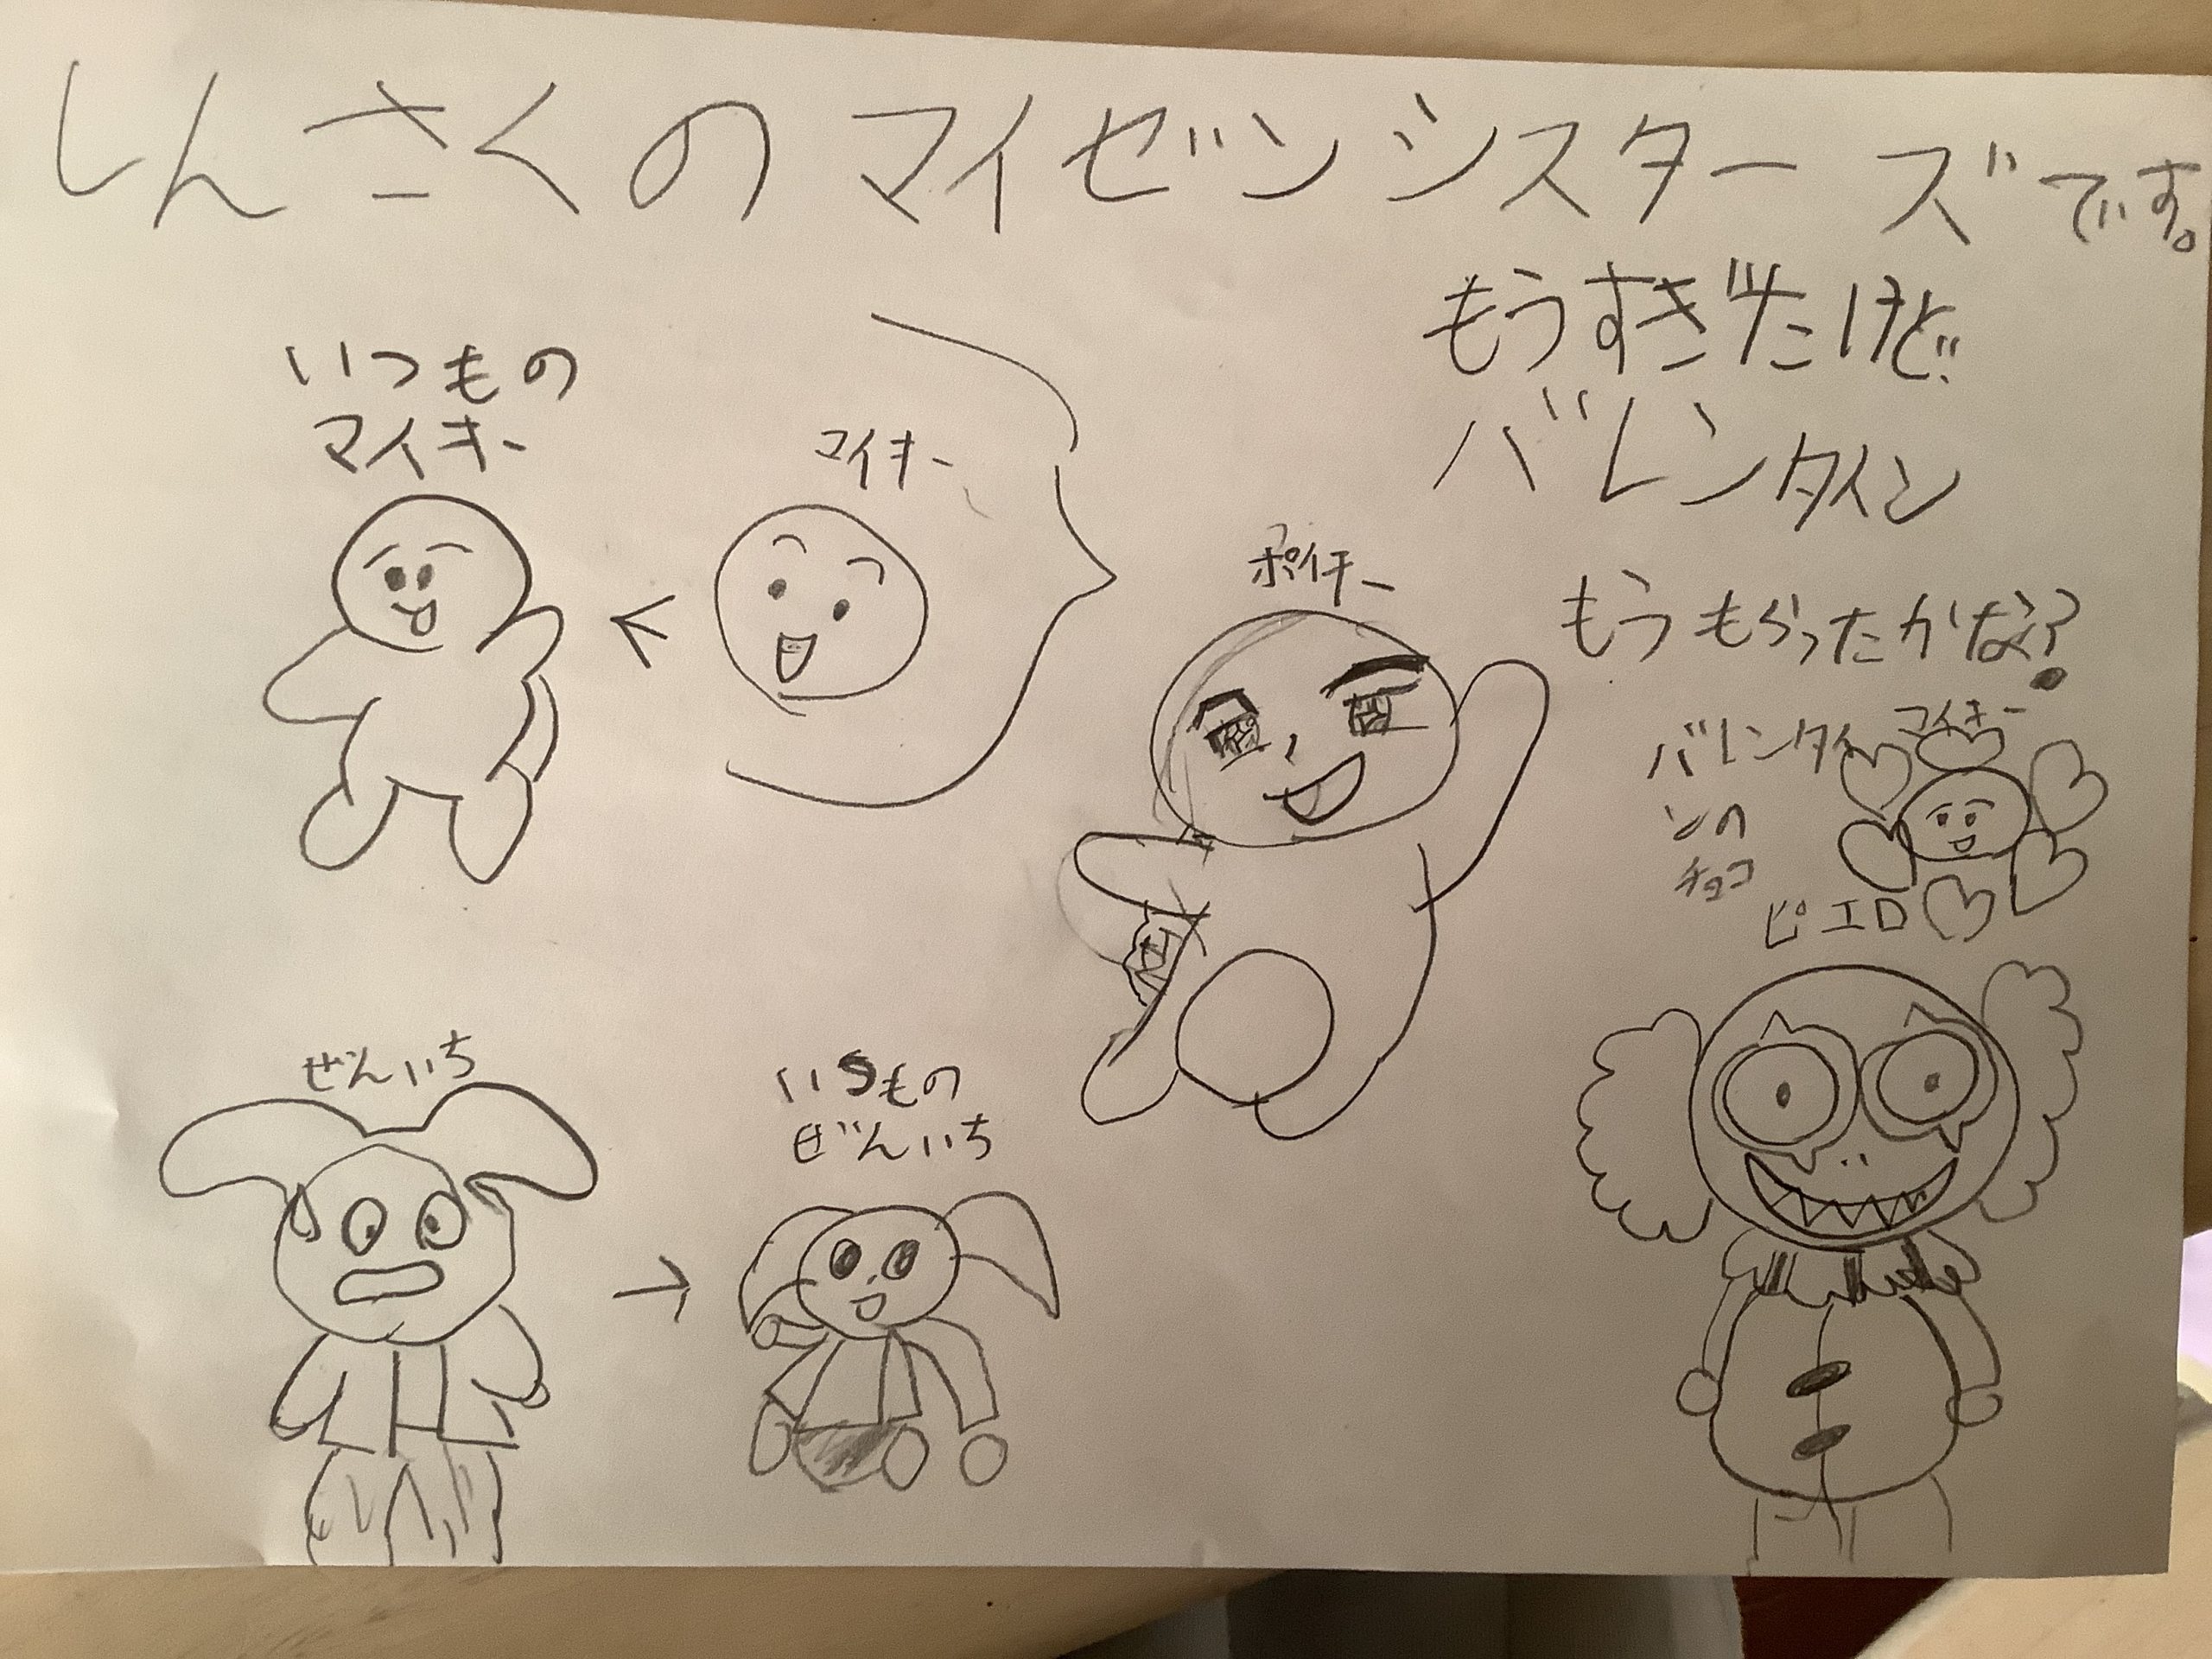 しんさくのマイゼンシスターズです。
もうすぎたけど
バレンタイン
もうもらったかな?
いつもの
マイキー
マイキー
ポイチー
バレンタイ
ンの
チョコ
マイキー
ピエロ
ぜんいち
いつもの
ぜんいち